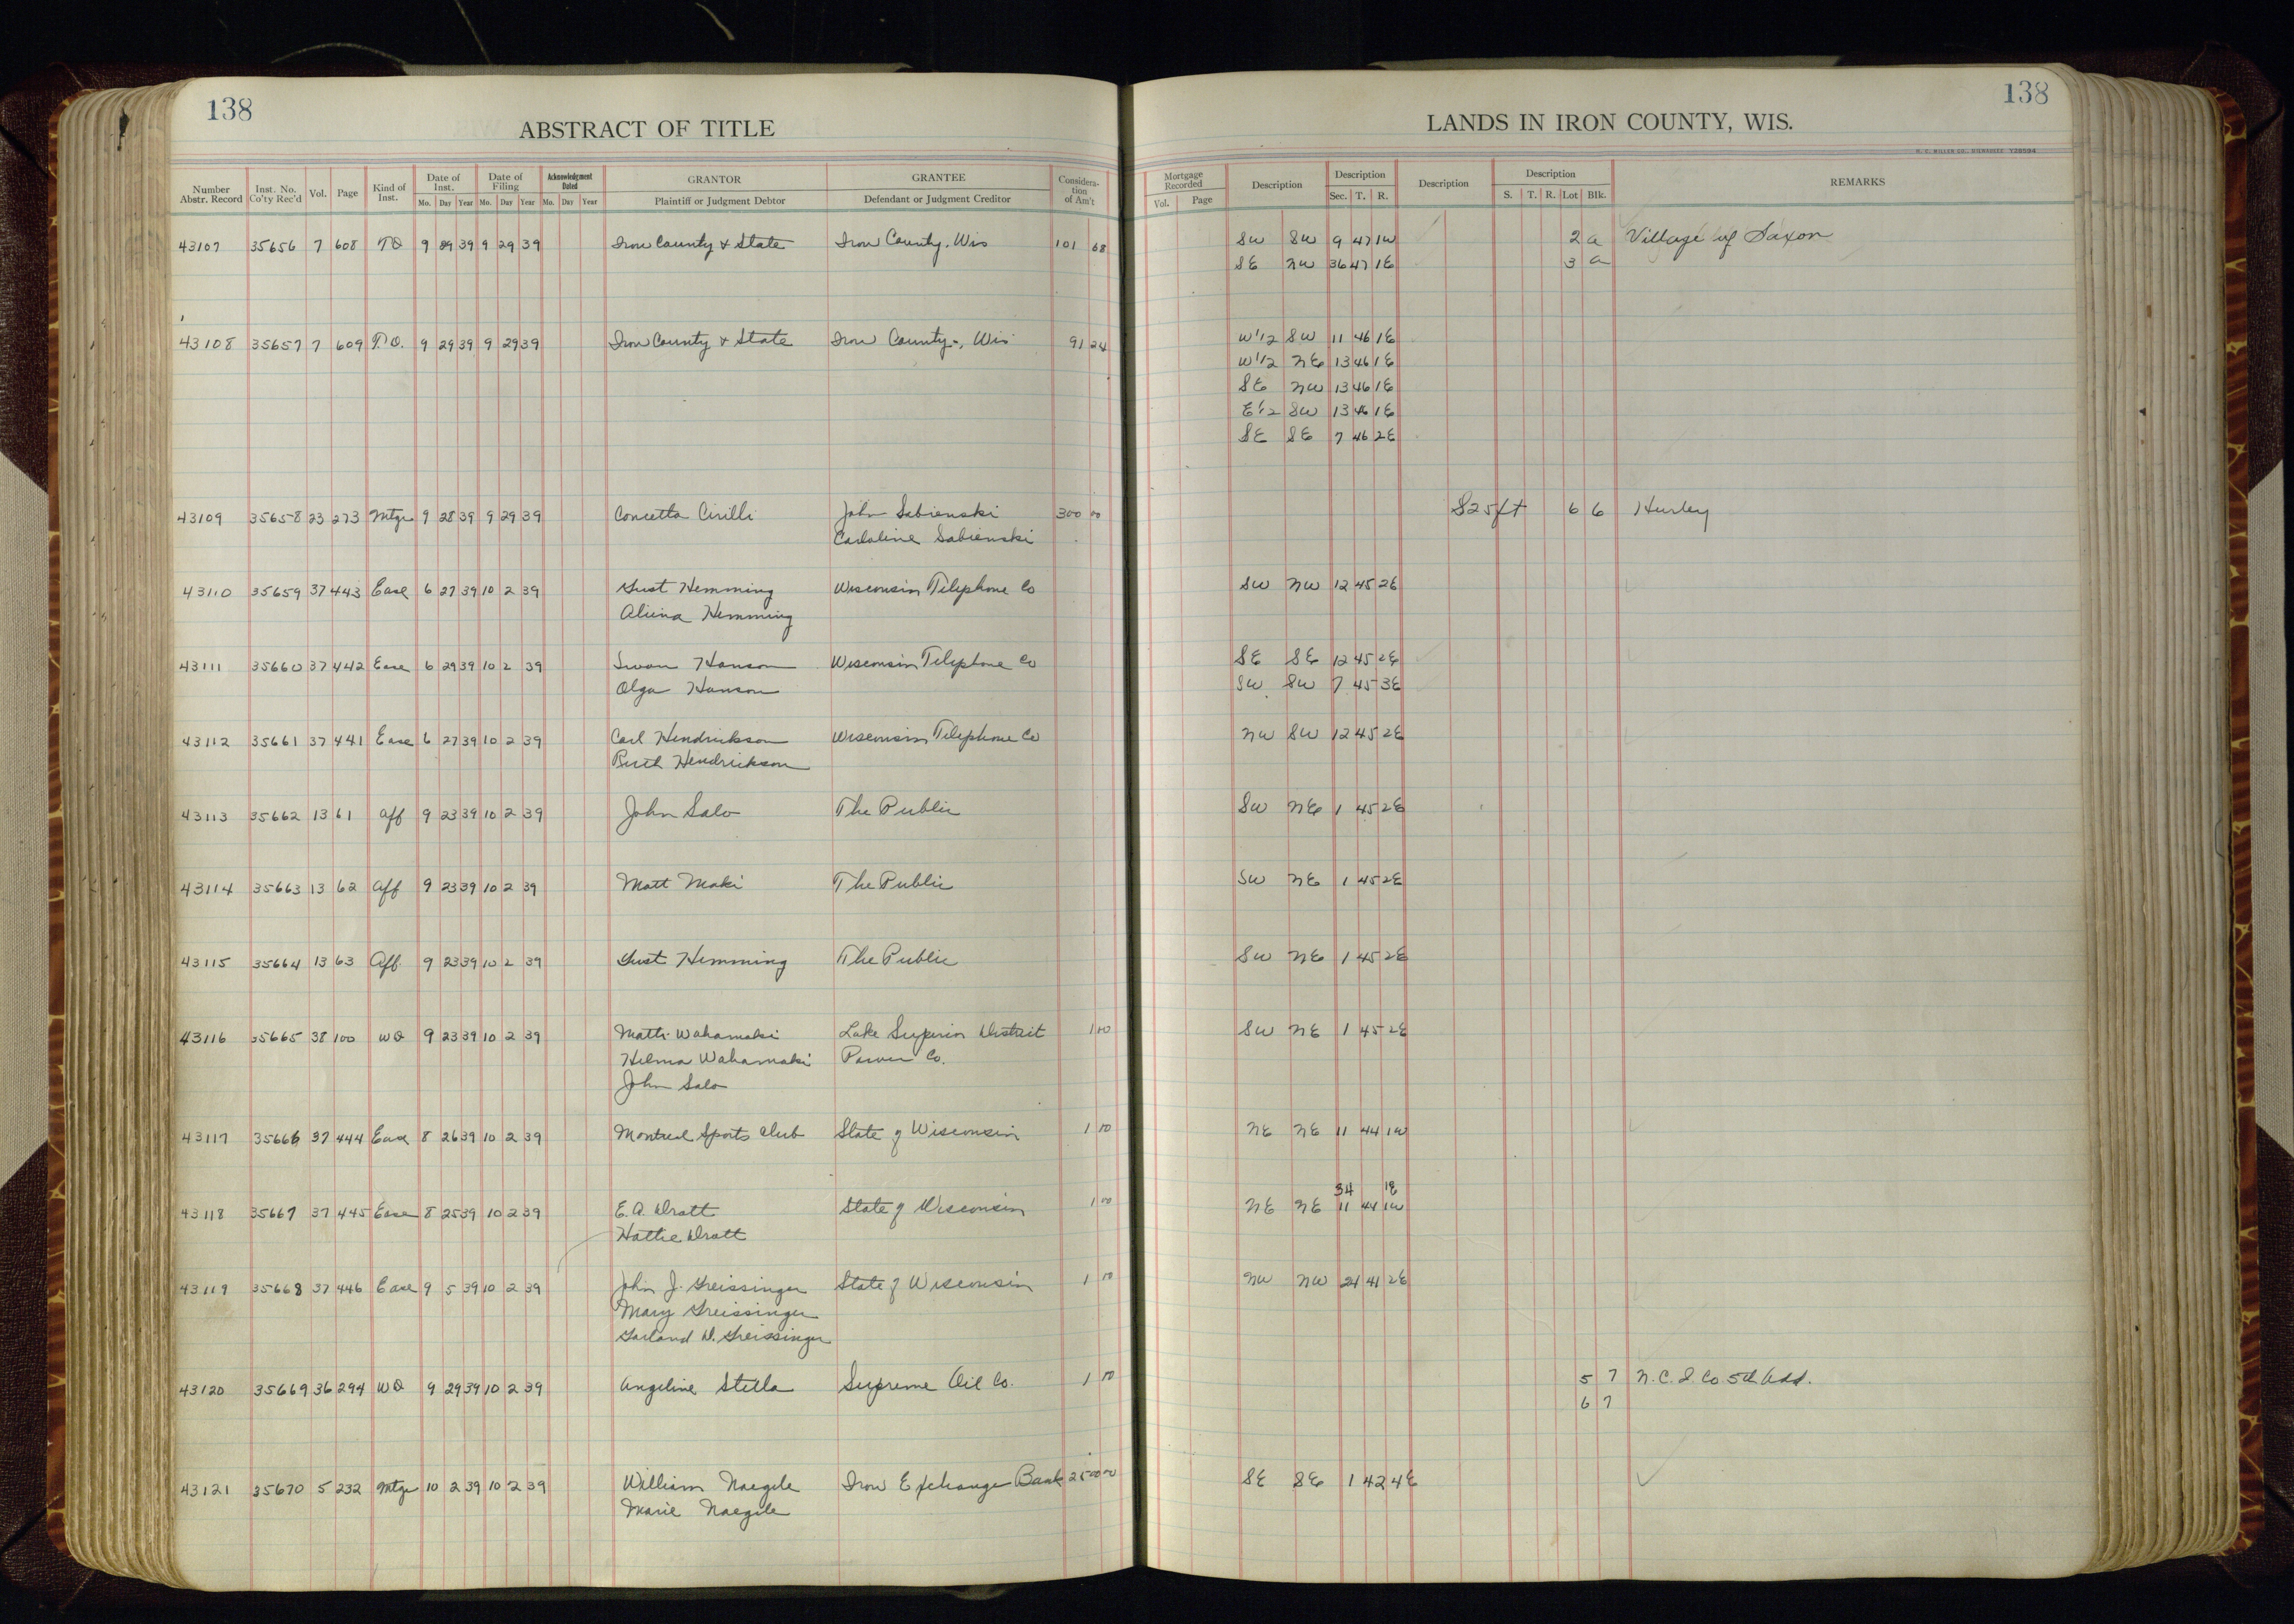 138
ABSTRACT OF TITLE
Number Abstr. Record Inst. No. Co'ty Rec'd Vol. Page Kind of Inst. Date of Inst. Mo. Day Year Date of Filing Mo. Day Year Acknowledgment Dated Mo. Day Year GRANTOR Plaintiff or Judgment Debtor GRANTEE Defendant or Judgment Creditor Considera-tion of Am't
43107 35656 7 608 TD 9 29 39 9 29 39 Iron County & State Iron County, Wis 101 68
43108 35657 7 609 T.D. 9 29 39 9 29 39 Iron County & State Iron County, Wis 91 24
43109 35658 23 273 Mtge 9 28 39 9 29 39 Concetta Cirilli John Sabienski 300 00
Caroline Sabienski
43110 35659 37 443 Ease 6 27 39 10 2 39 Gust Hemming Wisconsin Telephone Co
Hemming
43111 35660 37 442 Ease 6 29 39 10 2 39 Swan Hanson Wisconsin Telephone Co
Olga Hanson
43112 35661 37 441 Ease 6 27 39 10 2 39 Carl Hendrickson Wisconsin Telephone Co
Hendrickson
43113 35662 13 61 Aff 9 23 39 10 2 39 John Salo The Public
43114 35663 13 62 Aff 9 23 39 10 2 39 Matt Maki The Public
43115 35664 13 63 Aff 9 23 39 10 2 39 Gust Hemming The Public
43116 35665 38 100 WD 9 23 39 10 2 39 Matti Wahamaki Lake Superior District 1 00
Hilma Wahamaki Power Co.
John Salo
43117 35666 37 444 Ease 8 26 39 10 2 39 Montreal Sports Club State of Wisconsin 1 00
43118 35667 37 445 Ease 8 25 39 10 2 39 E. A. Dratt State of Wisconsin 1 00
Hattie Dratt
43119 35668 37 446 Ease 9 5 39 10 2 39 John J. Greissinger State of Wisconsin 1 00
Mary Greissinger
Garland D. Greissinger
43120 35669 36 294 WD 9 29 39 10 2 39 Angeline Stella Supreme Oil Co. 1 00
43121 35670 5 232 Mtge 10 2 39 10 2 39 William Naegele Iron Exchange Bank 2500 00
Marie Naegele
138
LANDS IN IRON COUNTY, WIS.
H. C. MILLER CO., MILWAUKEE Y28594
Mortgage Recorded Vol. Page Description Description Sec. T. R. Description Description S. T. R. Lot Blk. REMARKS
SW SW 9 47 1W 2 a Village of Saxon
SE NW 36 47 1E 3 a
W1/2 SW 11 46 1E
W1/2 NE 13 46 1E
SE NW 13 46 1E
E1/2 SW 13 46 1E
SE SE 7 46 2E
S25ft 6 6 Hurley
SW NW 12 45 2E
SE SE 12 45 2E
SW SW 7 45 3E
NW SW 12 45 2E
SW NE 1 45 2E
SW NE 1 45 2E
SW NE 1 45 2E
SW NE 1 45 2E
NE NE 11 44 1W
34 1E
NE NE 11 44 1W
NW NW 24 41 2E
5 7 N.C.I. Co 5th Add.
6 7
SE SE 1 42 4E